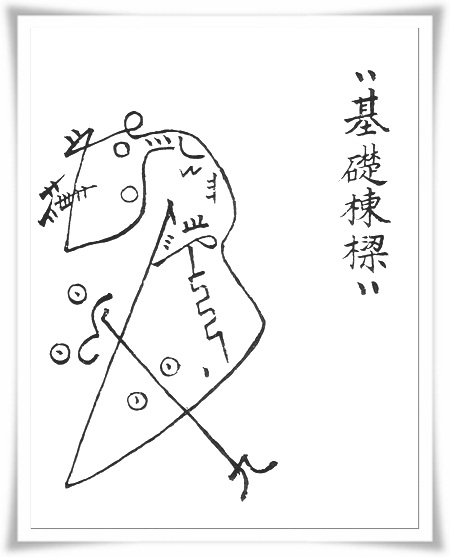 "基礎棟樑"